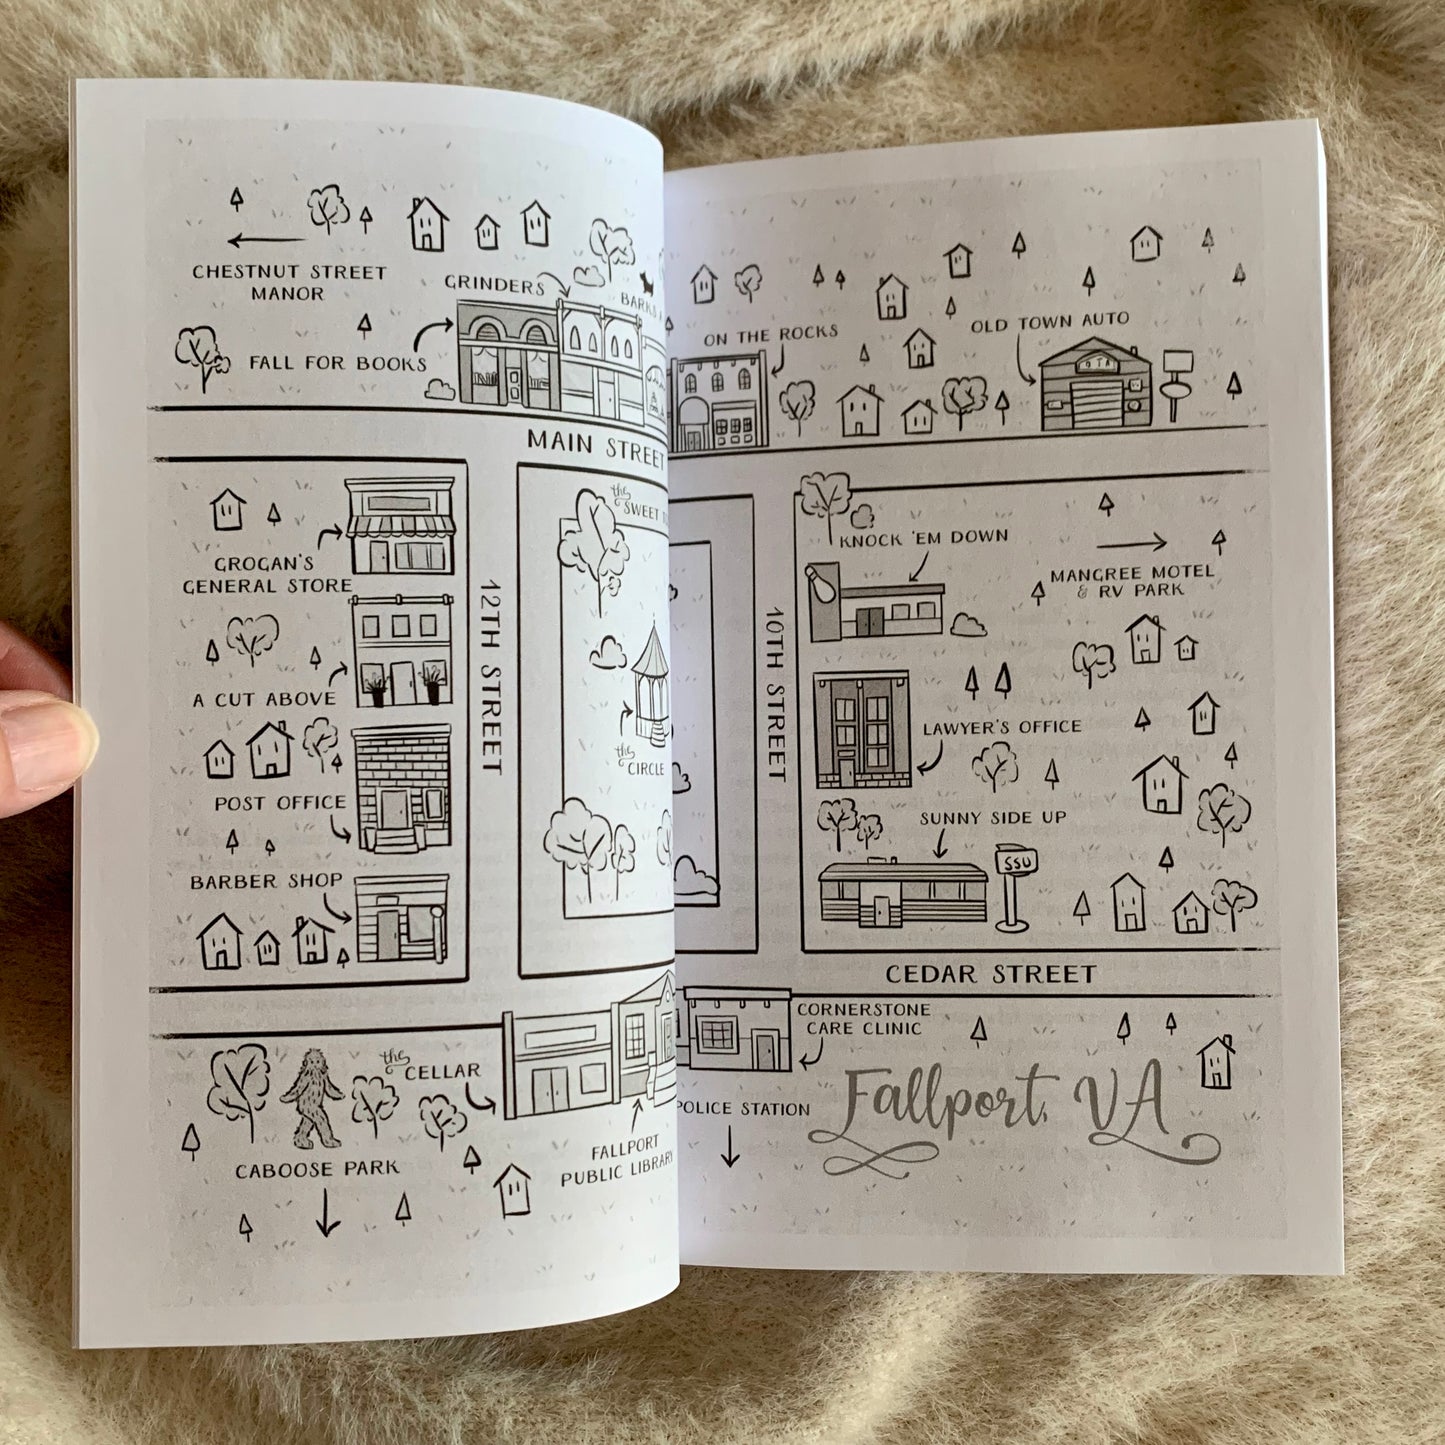 CHESTNUT STREET
MANOR
GRINDERS
BARKS
FALL FOR BOOKS
MAIN STREET
the
SWEET
GROGAN'S
GENERAL STORE
A CUT ABOVE
12TH STREET
the
CIRCLE
POST OFFICE
BARBER SHOP
the
CELLAR
CABOOSE PARK
FALLPORT
PUBLIC LIBRARY
ON THE ROCKS
OLD TOWN AUTO
OTA
KNOCK 'EM DOWN
MANGREE MOTEL
& RV PARK
10TH STREET
LAWYER'S OFFICE
SUNNY SIDE UP
SSU
CEDAR STREET
CORNERSTONE
CARE CLINIC
POLICE STATION
Fallport, VA